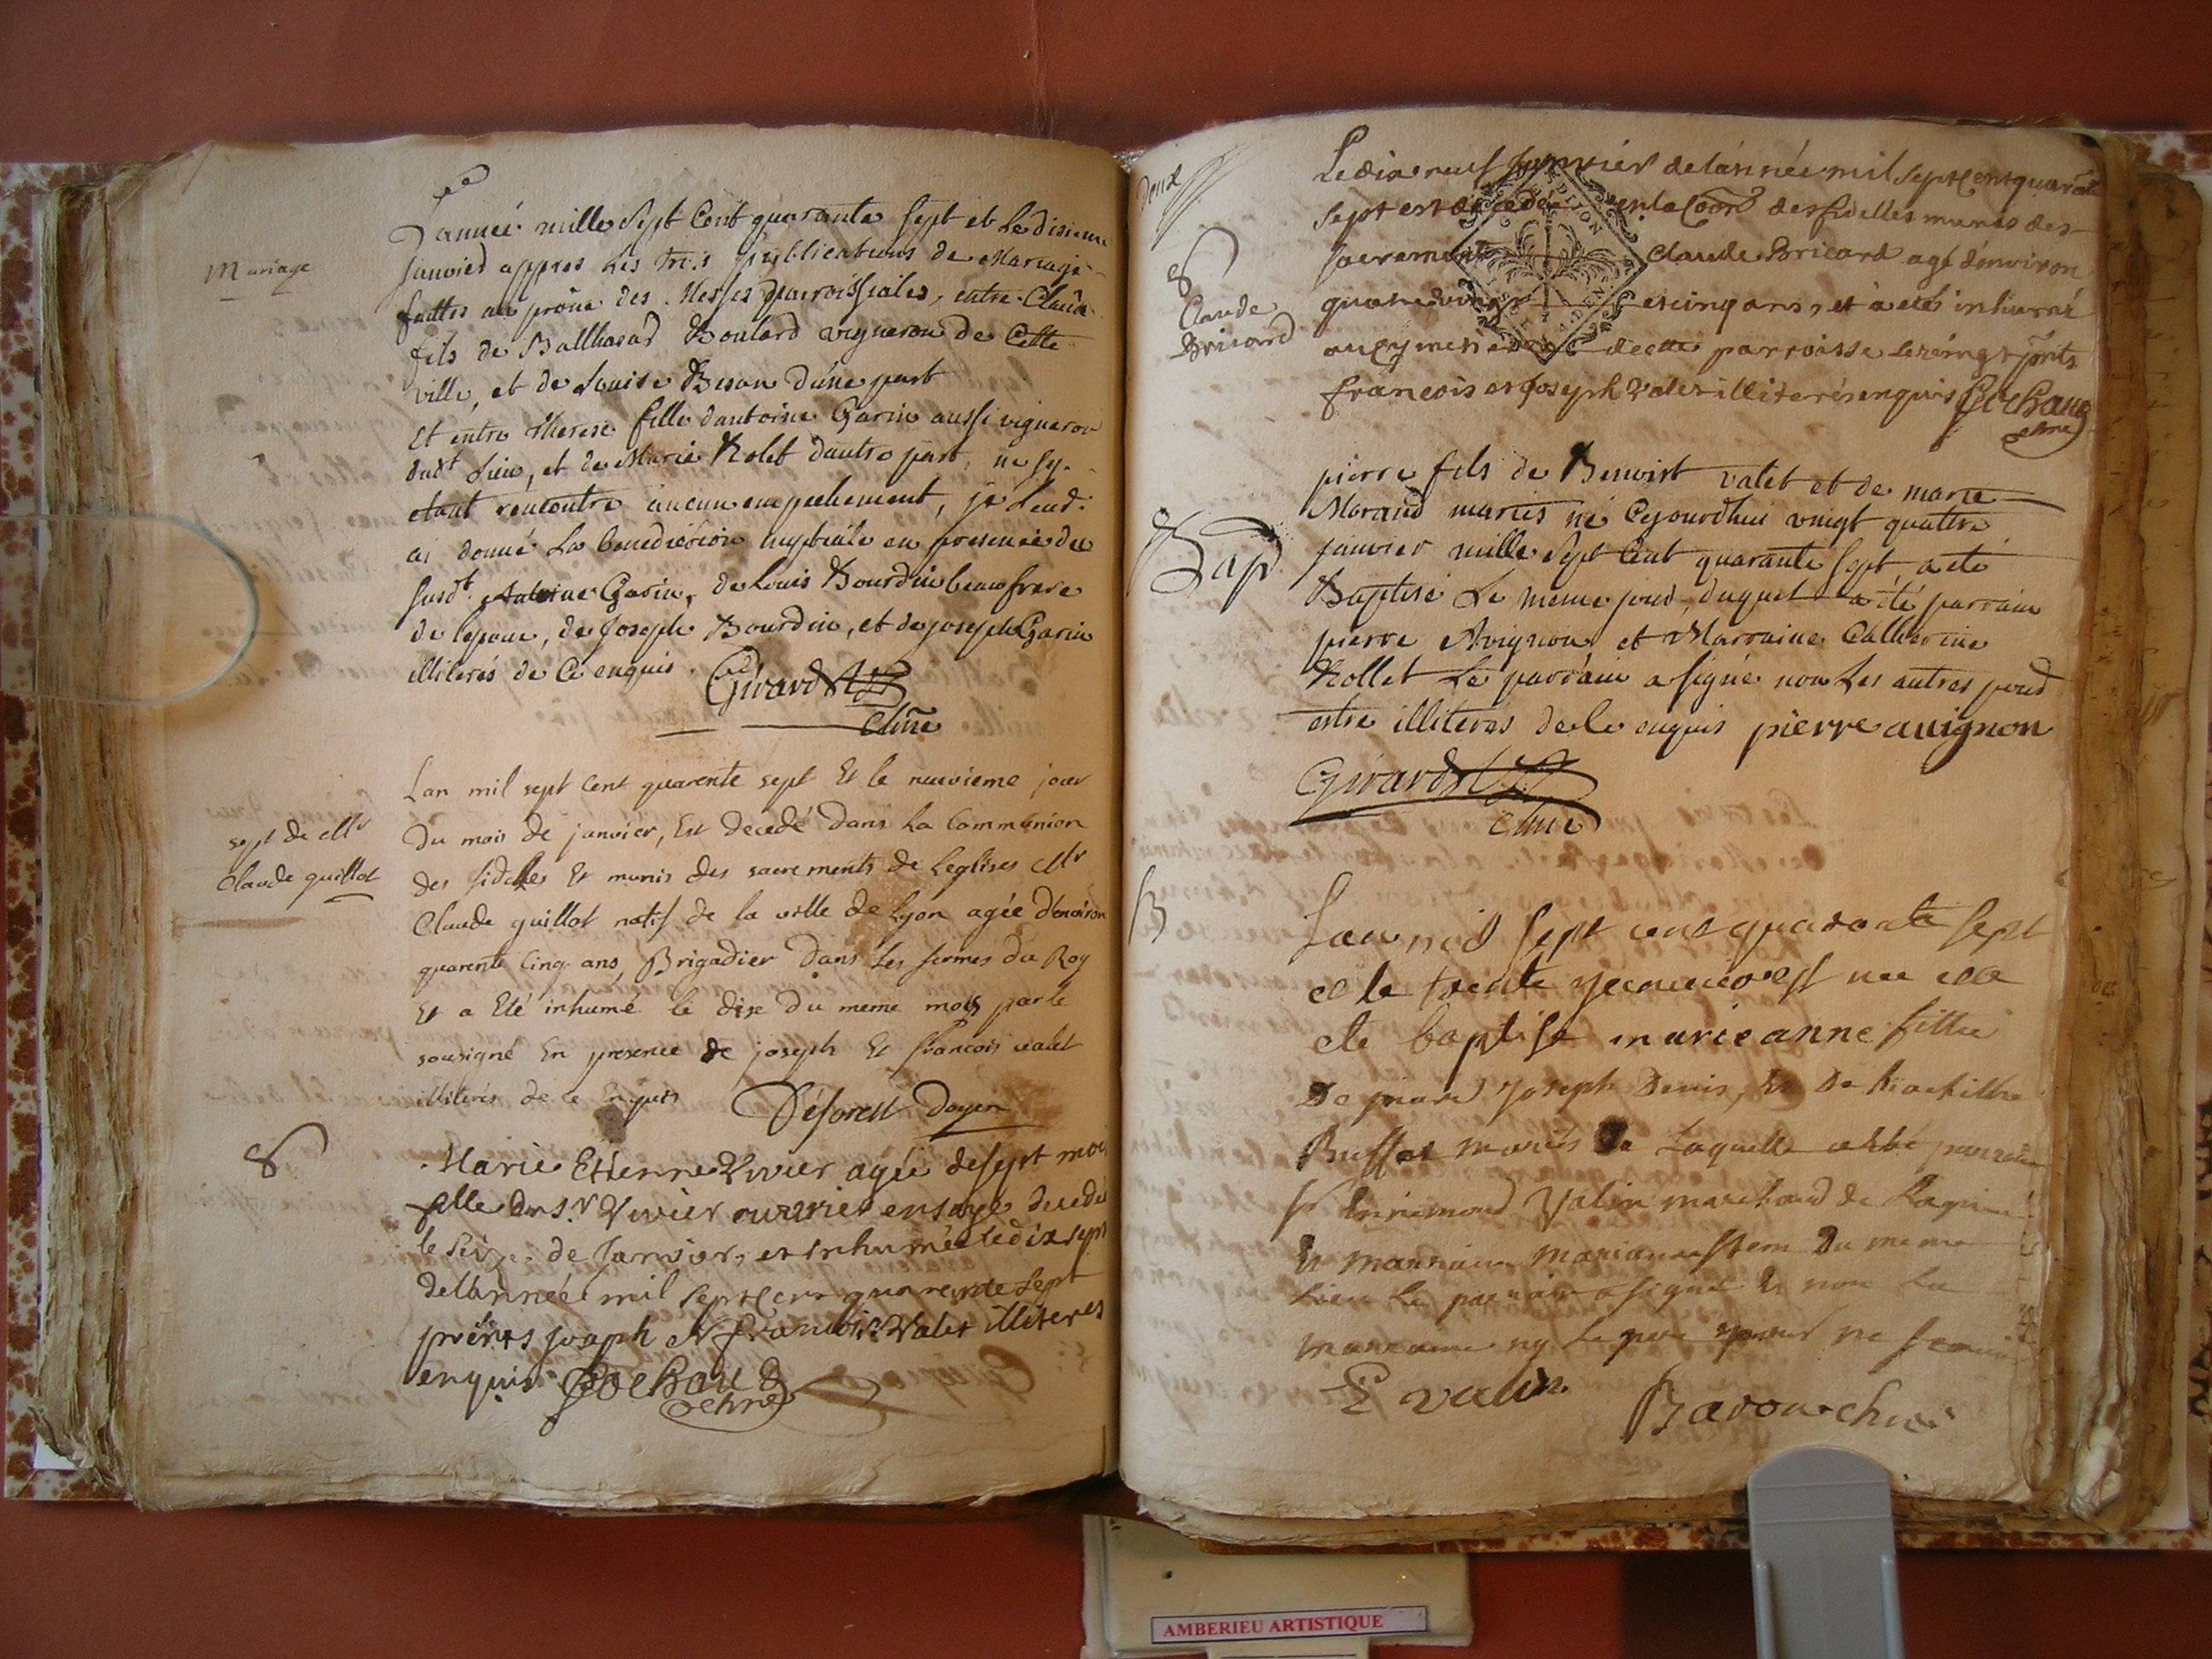 Mariage
L'année mille sept Cent quarante sept et Le disieme
janvied appres Les trois publications de Mariage
faittes au prône des Messes parroissiales, entre Claude
fils de Balthasard Boulard vigneron de Cette
ville, et de Louise Besson d'une part
Et entre Therese fille dantoine Garin aussi vigneron
dudt Lieu, et de Marie Rolet dautre part, ne sy
etant rencontré aucun empechement, je
ai donné La benediction nuptiale en presence du
susdt Antoine Garin, de Louis Bourdin beaufrere
de lepoux, de Joseph Bourdin, et de joseph Garin
illiterés de Ce enquis. Girard
Chne
sept de Mr
Claude guillot
Lan mil sept Cent quarente sept Et le neuvieme jour
Du mois de janvier, Est decedé Dans La Communion
Des fidelles Et munis des sacrements de Leglises Mr
Claude guillot natif de la ville de Lyon agée Denviron
quarente Cinq ans, Brigadier Dans Les fermes Du Roy
Et a Eté inhumé le dix Du meme mois par le
sousigné En presence de joseph Et francois valet
illiterés de Ce Enquis Déforest Doyen
Marie Etienne Vivier agée de sept mois
fille du Sr Vivier ouvrier en soye decedée
le seize de Janvier, et inhumée le dix sept
de l'année mil sept cent quarente sept
présents joseph et francois Valet illiterés
enquis Cochaud
chne
Deux
Claude
Bricard
Le dix neuf Janvier de l'année mil sept cent quarante
sept est decedé en la Coon des fidelles munis des
sacrements Claude Bricard agé d'environ
quatre vingt et cinq ans, et a eté inhumé
au cymetiere de cette parroisse le vingt pnts
francois et Joseph Valet illiterés enquis Cochaud
chne
Bap
pierre fils de Benoist valet et de marie
Morand mariés né Cejourdhui vingt quattre
janvier mille sept Cent quarante sept a eté
Baptisé Le meme jour, duquel a été parrain
pierre Avignon et Marraine Catherine
Rollet Le parrain a signé non Les autres pour
estre illiterés de Ce enquis pierre avignon
Girard
Chne
B
Lan mil sept cent quarante sept
et le trente janvier est nee et a
ete baptisé marie anne fille
De pierre Joseph Denis, Et De
Buffet mariés De Laquelle a été parrain
Sr Ennemond Valin marchand de Lagnieu
Et marraine du meme
Lieu Le parrain a signé Et non La
marraine ny Le pere pour ne scavoir
E valin Bavou chne
AMBERIEU ARTISTIQUE